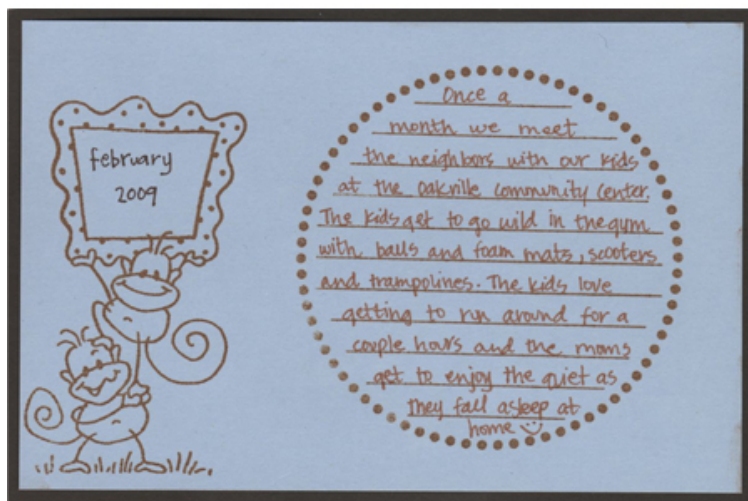 february
2009
Once a
month we meet
the neighbors with our kids
at the Oakville community center.
The kids get to go wild in the gym
with balls and foam mats, scooters
and trampolines. The kids love
getting to run around for a
couple hours and the moms
get to enjoy the quiet as
they fall asleep at
home